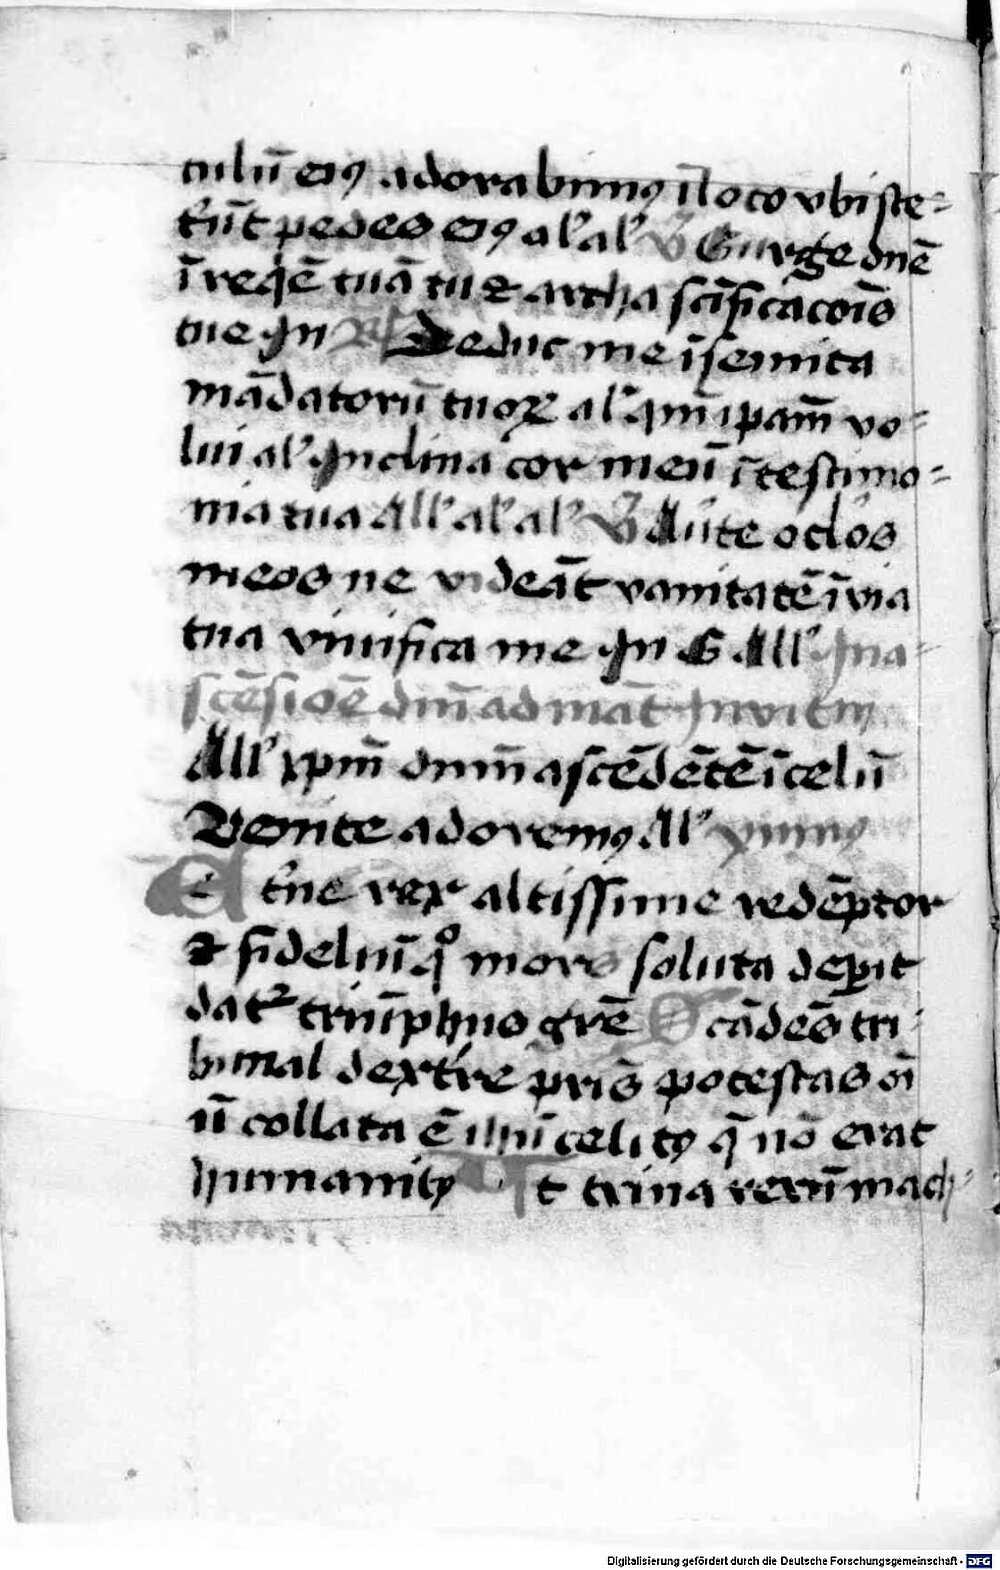 culū eiꝰ adorabimꝰ ī loco vbi ste-
ter̄t pedes eiꝰ al' al' V̄ Surge dn̄e
ī req̄ē tuā tu ⁊ archa sc̄ificacōis
tue In R̄ Deduc me ī semita
mādatorū tuoꝝ al' q̄m ip̄am vo-
lui al' Inclina cor meū ī testimo-
nia tua All' al' al' V̄ Au̓te oc̄los
meos ne videāt vanitatē ī via
tua viuifica me In G All' In a-
scēsiōe dn̄i ad māt Inuitꝰ
All' xp̄m dnm̄ ascēdētē ī celū
Venite adoremꝰ All' ymnꝰ
Et̓ne rex altissime redēptor
⁊ fideliū q° mors soluta dep̲it
dat̉ triūphus gr̄e Scādēs tri-
bunal dext̓re pr̄is potestas oī
ū collata ē ihū celitꝰ q̄ nō erat
humanitꝰ Vt trina rerū mach-